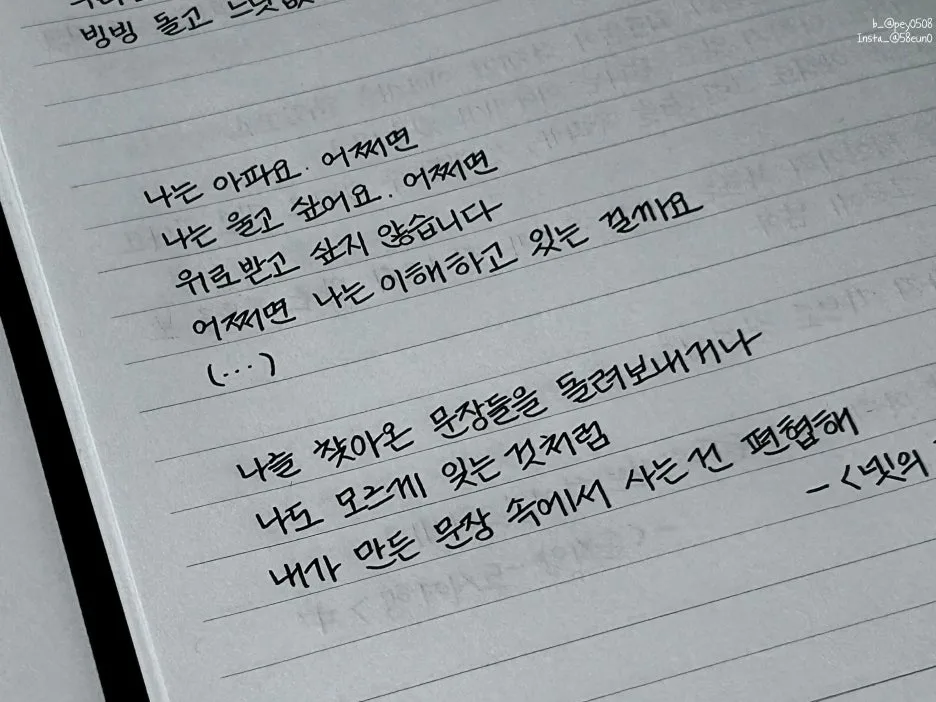 빙빙 돌고 느낌없
b_@pey0508
Insta_@58eun0
나는 아파요. 어쩌면
나는 울고 싶어요. 어쩌면
위로받고 싶지 않습니다
어쩌면 나는 이해하고 있는 걸까요
(...)
나를 찾아온 문장들을 돌려보내거나
나도 모르게 잊는 것처럼
내가 만든 문장 속에서 사는 건 편협해
- <넷의